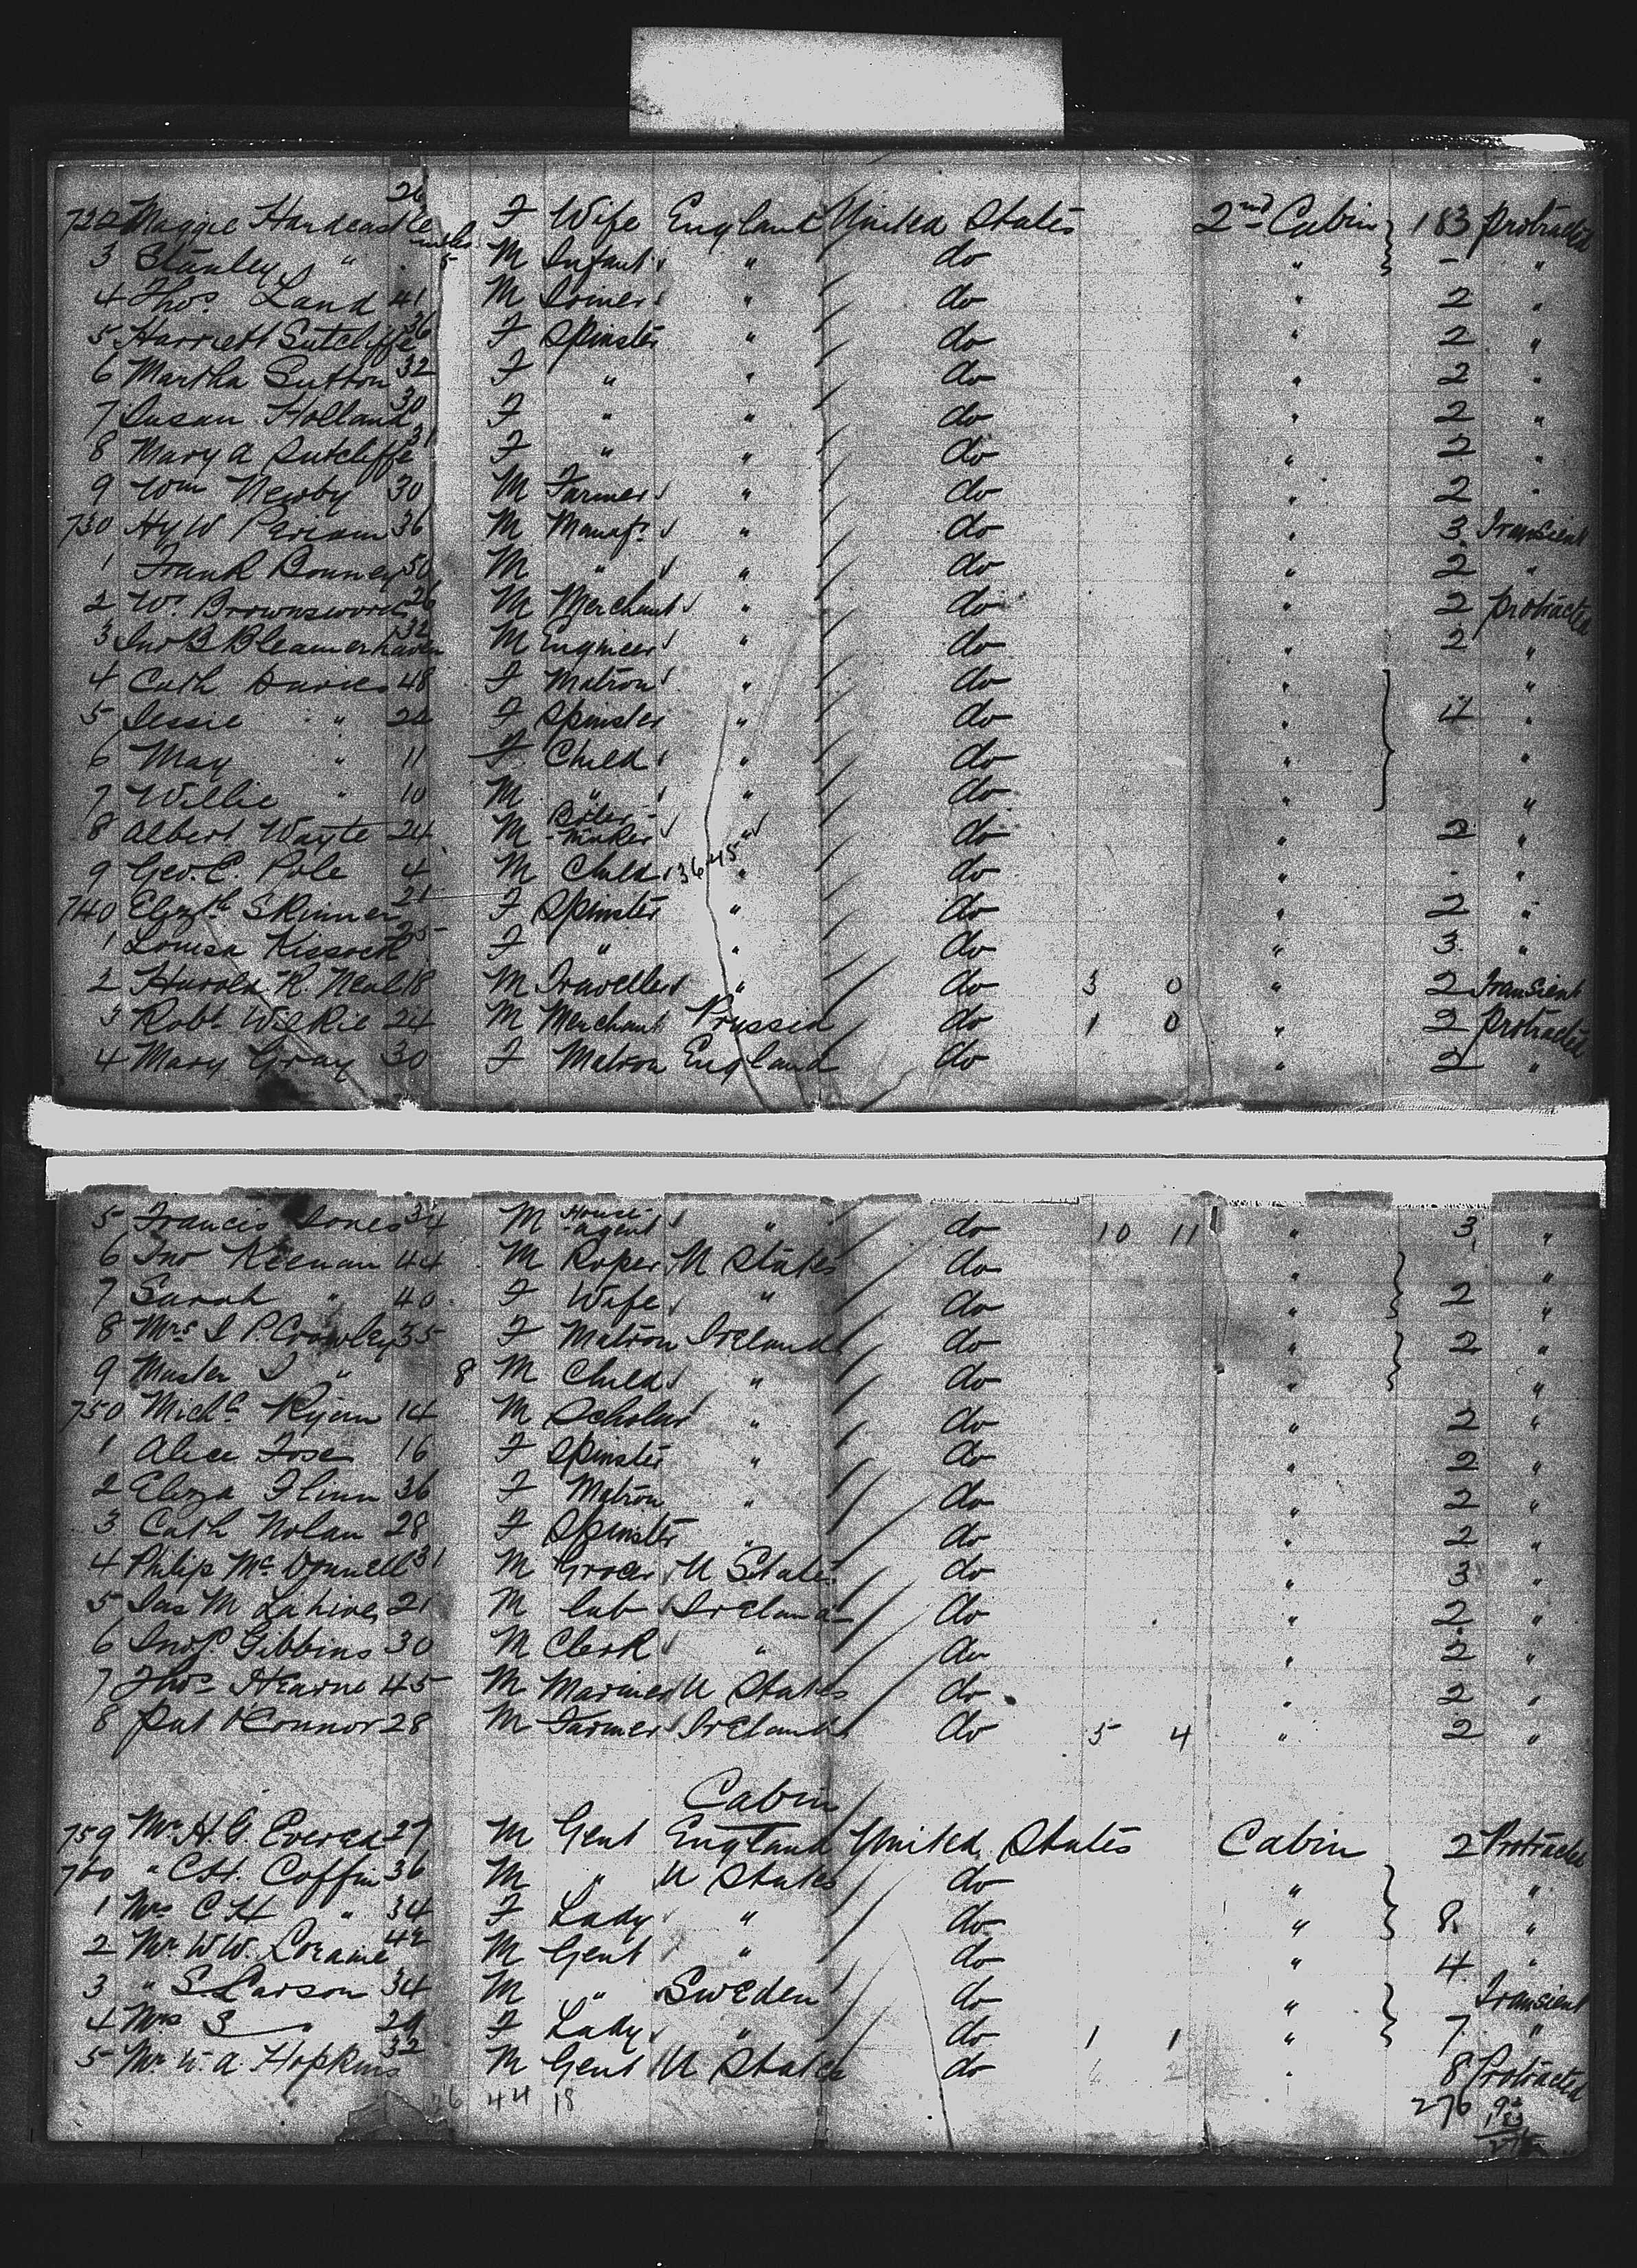 722 Maggie Hardcastle 26 F Wife England United States 2nd Cabin 183 Protracted
3 Stanley " 5 mths M Infant " do " - "
4 Thos. Land 41 M Joiner " do " 2 "
5 Harriett Sutcliffe 36 F Spinster " do " 2 "
6 Martha Sutton 32 F " " do " 2 "
7 Susan Holland 30 F " " do " 2 "
8 Mary A Sutcliffe 31 F " " do " 2 "
9 Wm Newby 30 M Farmer " do " 2 "
730 Hy W Periam 36 M Manufr " do " 3 Transient
1 Frank Bonney 50 M " " do " 2 "
2 W. Brownsword 26 M Merchant " do " 2 Protracted
3 Jno B Bleamerhaven 32 M Engineer " do " 2 "
4 Cath Davies 48 F Matron " do " "
5 Jessie " 20 F Spinster " do " 4 "
6 May " 11 F Child " do " "
7 Willie " 10 M " " do " "
8 Albert Wayte 24 M Boiler-maker " do " 2 "
9 Geo. E. Pole 4 M Child 36 45 " do " - "
740 Elizth Skinner 21 F Spinster " do " 2 "
1 Louisa Kissock 25 F " " do " 3 "
2 Harold R Neal 18 M Traveller " do 3 0 " 2 Transient
3 Robt Wilkie 24 M Merchant Prussia do 1 0 " 2 Protracted
4 Mary Gray 30 F Matron England do " 2 "
5 Francis Jones 34 M House-agent " do 10 11 " 3 "
6 Jno Keenan 44 M Roper U States do " "
7 Sarah " 40 F Wife " do " 2 "
8 Mrs J P. Crowley 35 F Matron Ireland do " 2 "
9 Master J " 8 M Child " do " "
750 Michl Ryan 14 M Scholar " do " 2 "
1 Alice Fose 16 F Spinster " do " 2 "
2 Eliza Flinn 36 F Matron " do " 2 "
3 Cath Nolan 28 F Spinster " do " 2 "
4 Philip McDonnell 31 M Grocer U States do " 3 "
5 Jas M Lahive 21 M Lab Ireland do " 2 "
6 Jno P. Gibbins 30 M Clerk " do " 2 "
7 Thos Hearne 45 M Mariner U States do " 2 "
8 Pat O'Connor 28 M Farmer Ireland do 5 4 " 2 "
Cabin
759 Mr H. G. Evered 27 M Gent England United States Cabin 2 Protracted
760 " C.H. Coffin 36 M " U States do " "
1 Mrs C H " 34 F Lady " do " 8 "
2 Mr W W. Loraine 42 M Gent " do " 4 "
3 " S Larson 34 M " Sweden do " Transient
4 Mrs S " 29 F Lady " do 1 1 " 7 "
5 Mr W. A. Hopkins 32 M Gent U States do 2 " 8 Protracted
26 44 18 276 92
183